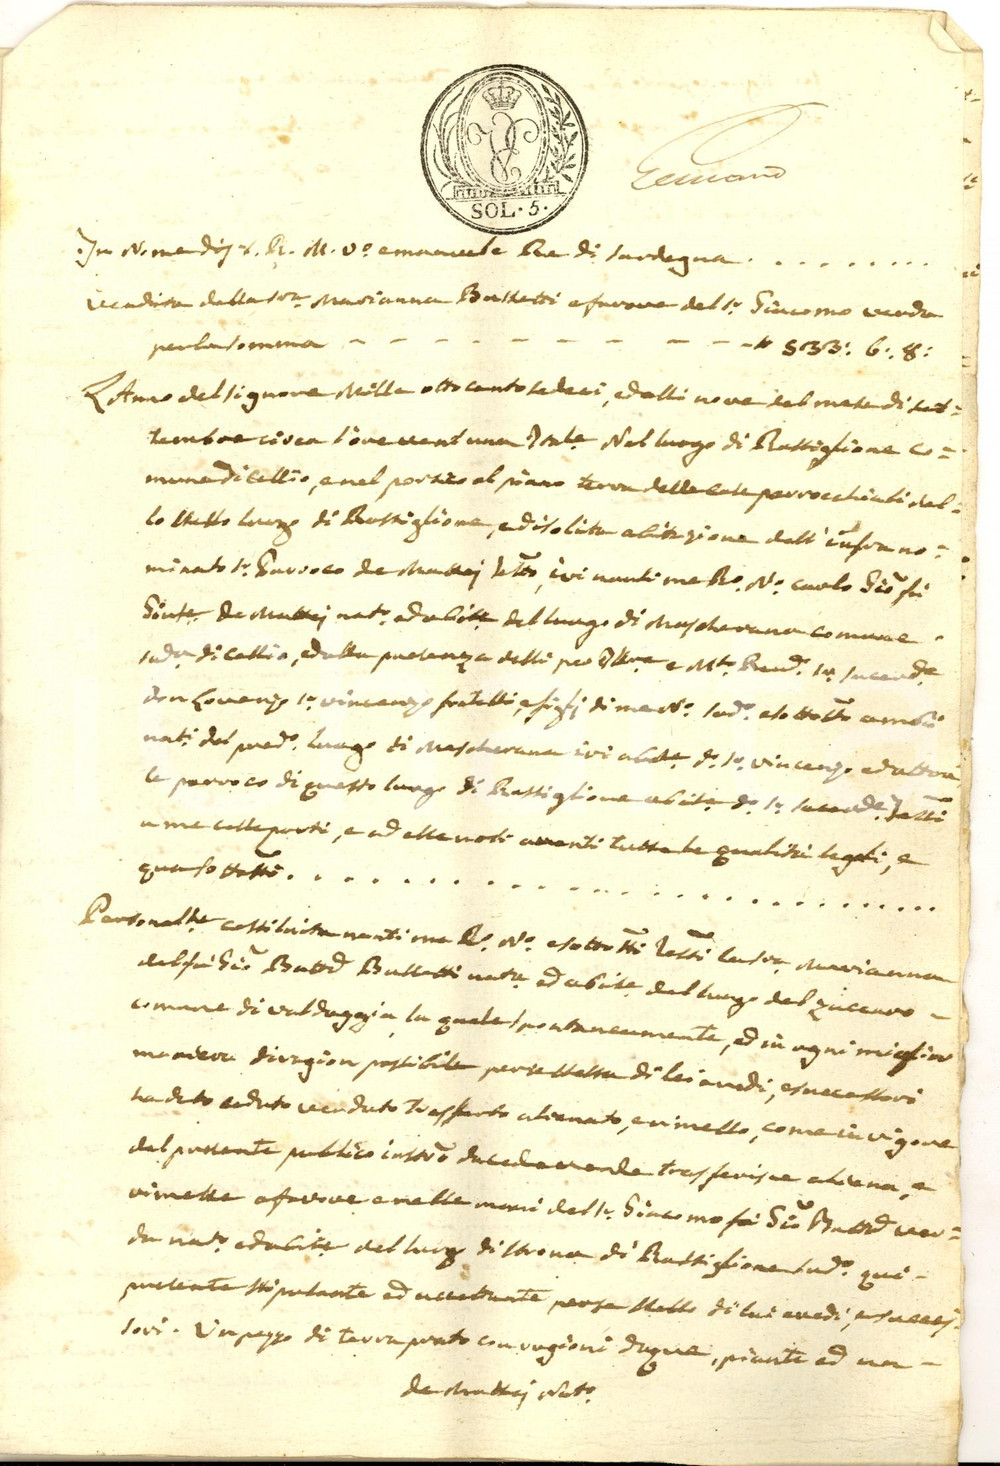 SOL. 5.
In Nome di S. R. M. Vo. emanuele Re di sardegna . . . . . . . .
Vendita della Sra. Marianna Bussetti a favore del Sr. Giacomo verda
per la somma - - - - - - - - 533: 6: 8:
L'Anno del signore Mille otto cento sedeci, ed alli nove del mese di set=
tembre circa l'ore vent'una Nel luogo di Rastiglione co=
mune di Cellio, e nel portico al piano terra delle case parrocchiali del=
lo stesso luogo di Rastiglione, e di solita abitazione dell' infra no=
minato Sr. Parroco de Mattej, ivi nanti me Ro. No. Carlo Gio. fu
de Mattej nato. ed abite. del luogo di Mascherana comune
sudo. di Cellio, ed alla presenza delli e Mto. Revdi. Sr. Sacerde.
don Lorenzo Sr. vincenzo fratelli, e figlj di me No. sudo. e sotto ambi
nati del predo. luogo di Mascherana ivi abite. do. Sr. vincenzo ed attua=
le parroco di questo luogo di Rastiglione abite. do. Sr. Sacerde. Testi
a me colle parti, e ad esse noti aventi tutte le qualità legali, e
qua sotto . . . . . . . . . . . . . . . . . . . .
Personalte. costituita nanti me Ro. No. e sotto Testi la Sra. Marianna
del fu Gio. Battd. Bussetti nata. ed abite. del luogo del Zuccaro -
comune di valduggia, la quale spontaneamente, ed in ogni miglior
maniera di ragion possibile per se stessa di lei eredi, e successori
ha dato ceduto venduto trasferto alienato, e rimesso, come in vigore
del presente publico da cede vende trasferisce aliena, e
rimette a favore e nelle mani del Sr. Giacomo fu Gio. Battd. ver=
da nato. ed abite. del luogo di Rastiglione sudo. qui -
presente stipulante ed accettante per se stesso di lui eredi, e succes=
sori. Un pezzo di terra prato con ragioni d'aque, piante ed
de Mattej Noto.